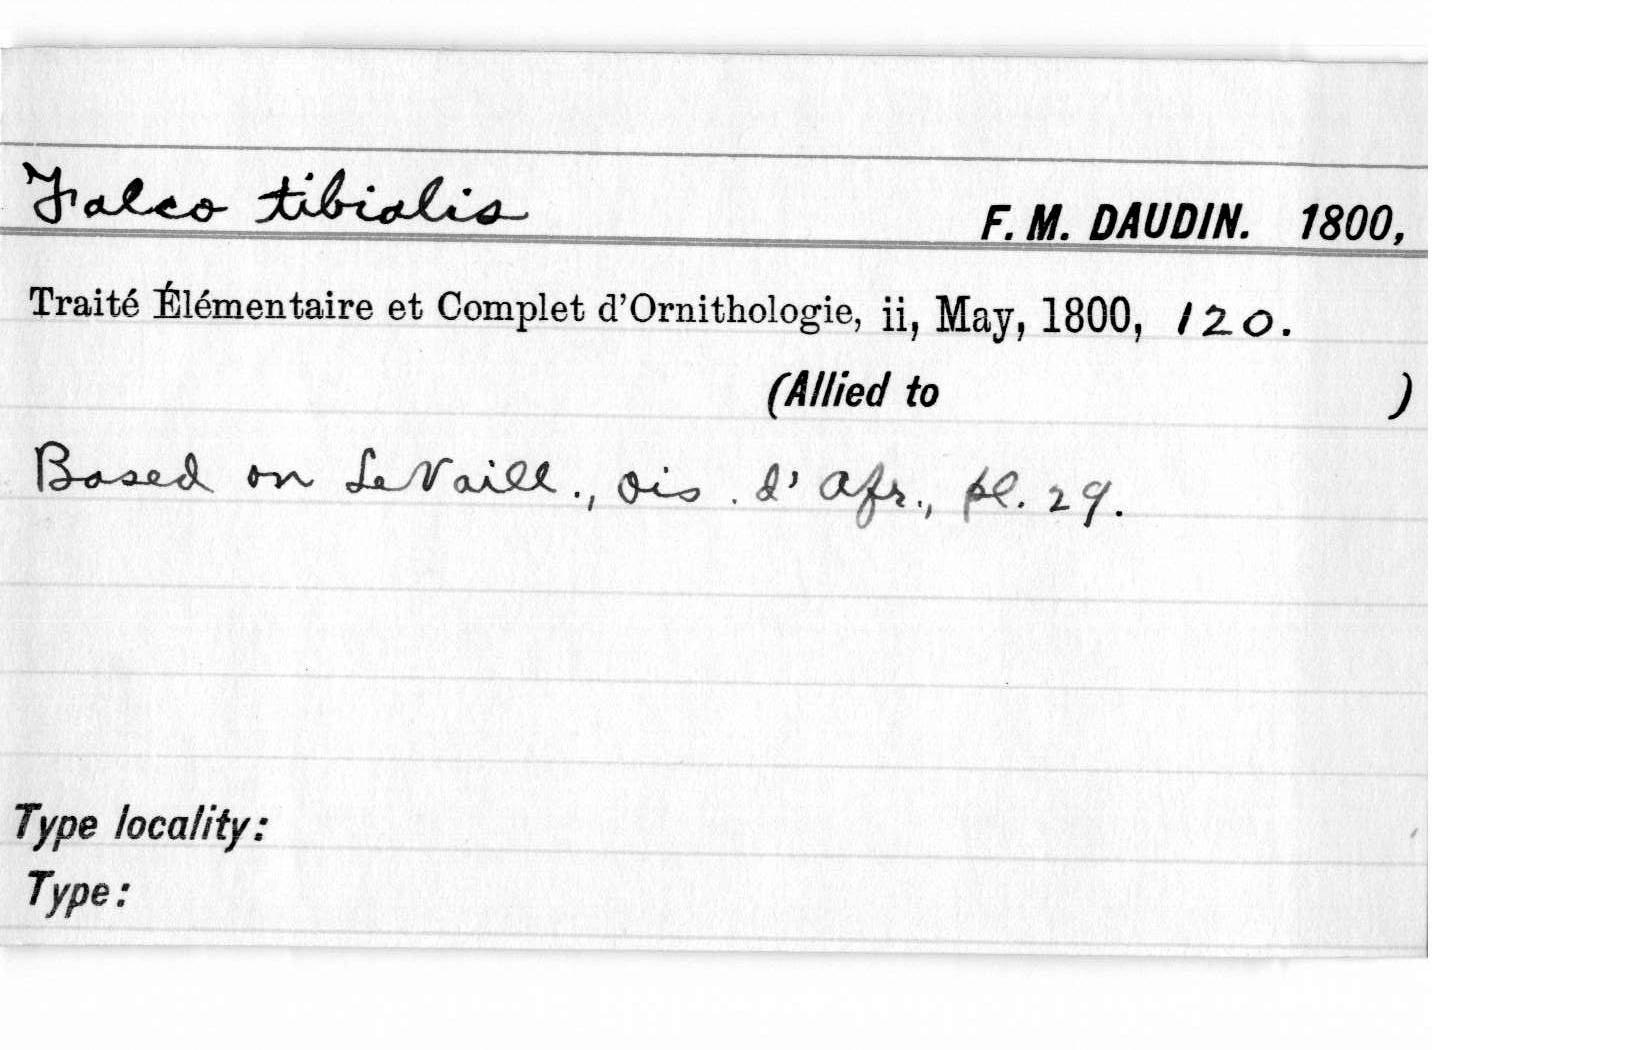 Falco tibialis F. M. DAUDIN. 1800,
Traité Élémentaire et Complet d'Ornithologie, ii, May, 1800, 120.
(Allied to )
Based on LeVaill., Ois. d'Afr., pl. 29.
Type locality:
Type: